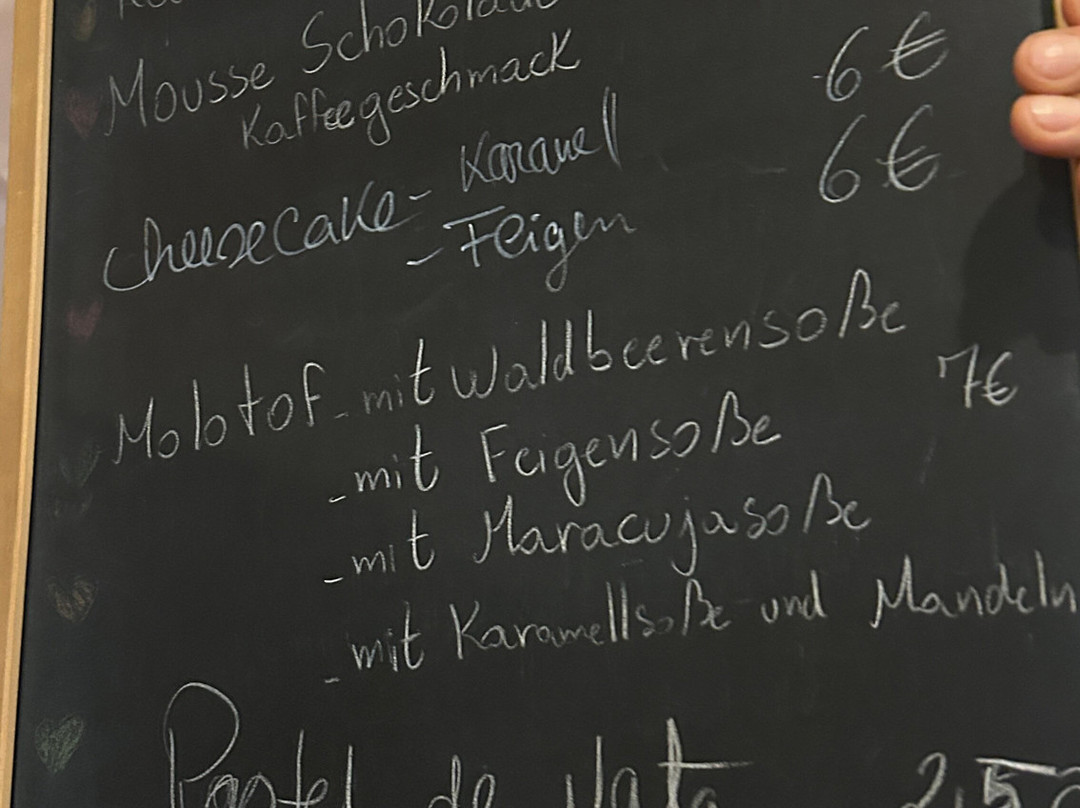 Mousse Schokolade 6 €
Kaffeegeschmack
Cheesecake - Karamel 6 €
- Feigen
Molotof - mit Waldbeerensoße 7€
- mit Feigensoße
- mit Maracujasoße
- mit Karamellsoße und Mandeln
Pastel de Nata 2,50